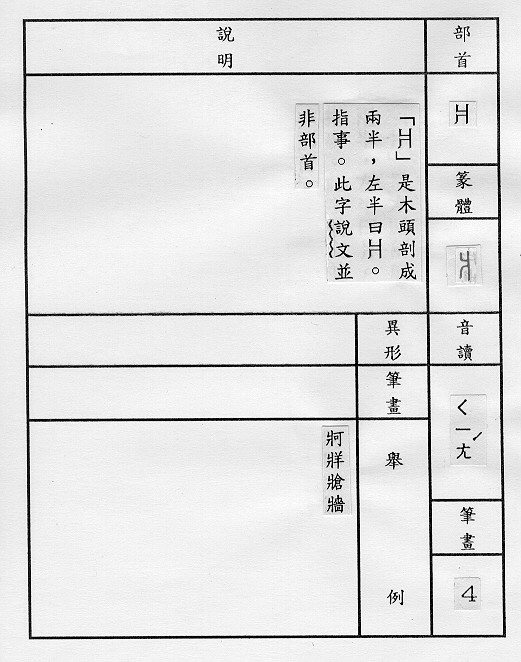 部首
爿
篆體
爿
音讀
ㄑㄧㄤˊ
筆畫
4
說明
「爿」是木頭剖成
兩半，左半曰爿。
指事。此字說文並
非部首。
異形
筆畫
舉例
牁牂牄牆